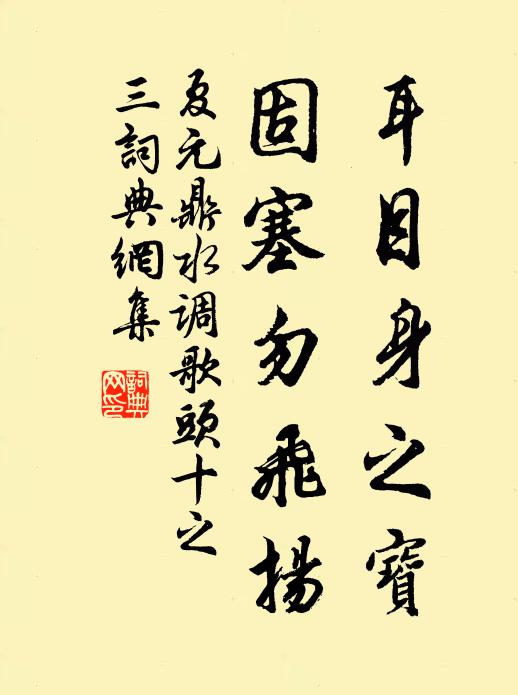 耳目身之寶
固塞勿飛揚
夏元鼎水调歌頭十之
三詞典網集
詞典
网印